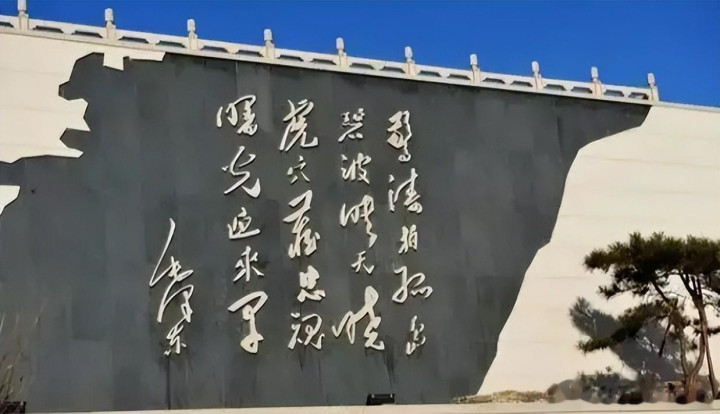 驚涛拍孤島
碧波映天曉
虎穴藏忠魂
曙光迎來早
毛泽东